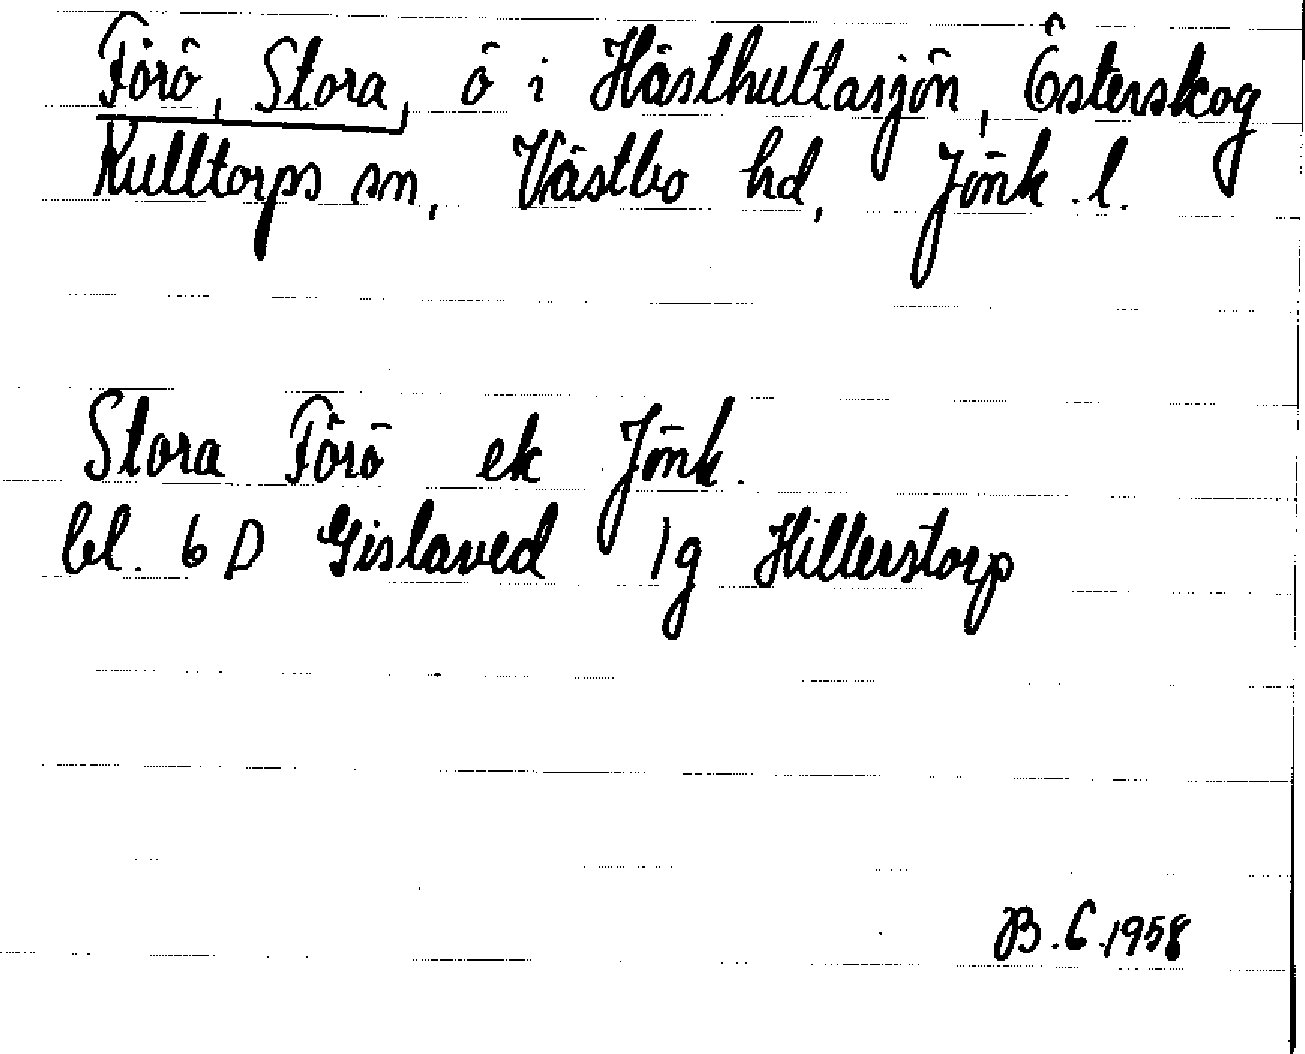 Förö, Stora, ö i Hästhultasjön, Österskog
Kulltorps sn, Västbo hd, Jönk. l.
Stora Förö ek Jönk.
bl. 6 D Gislaved 1g Hillerstorp
B.C.1958